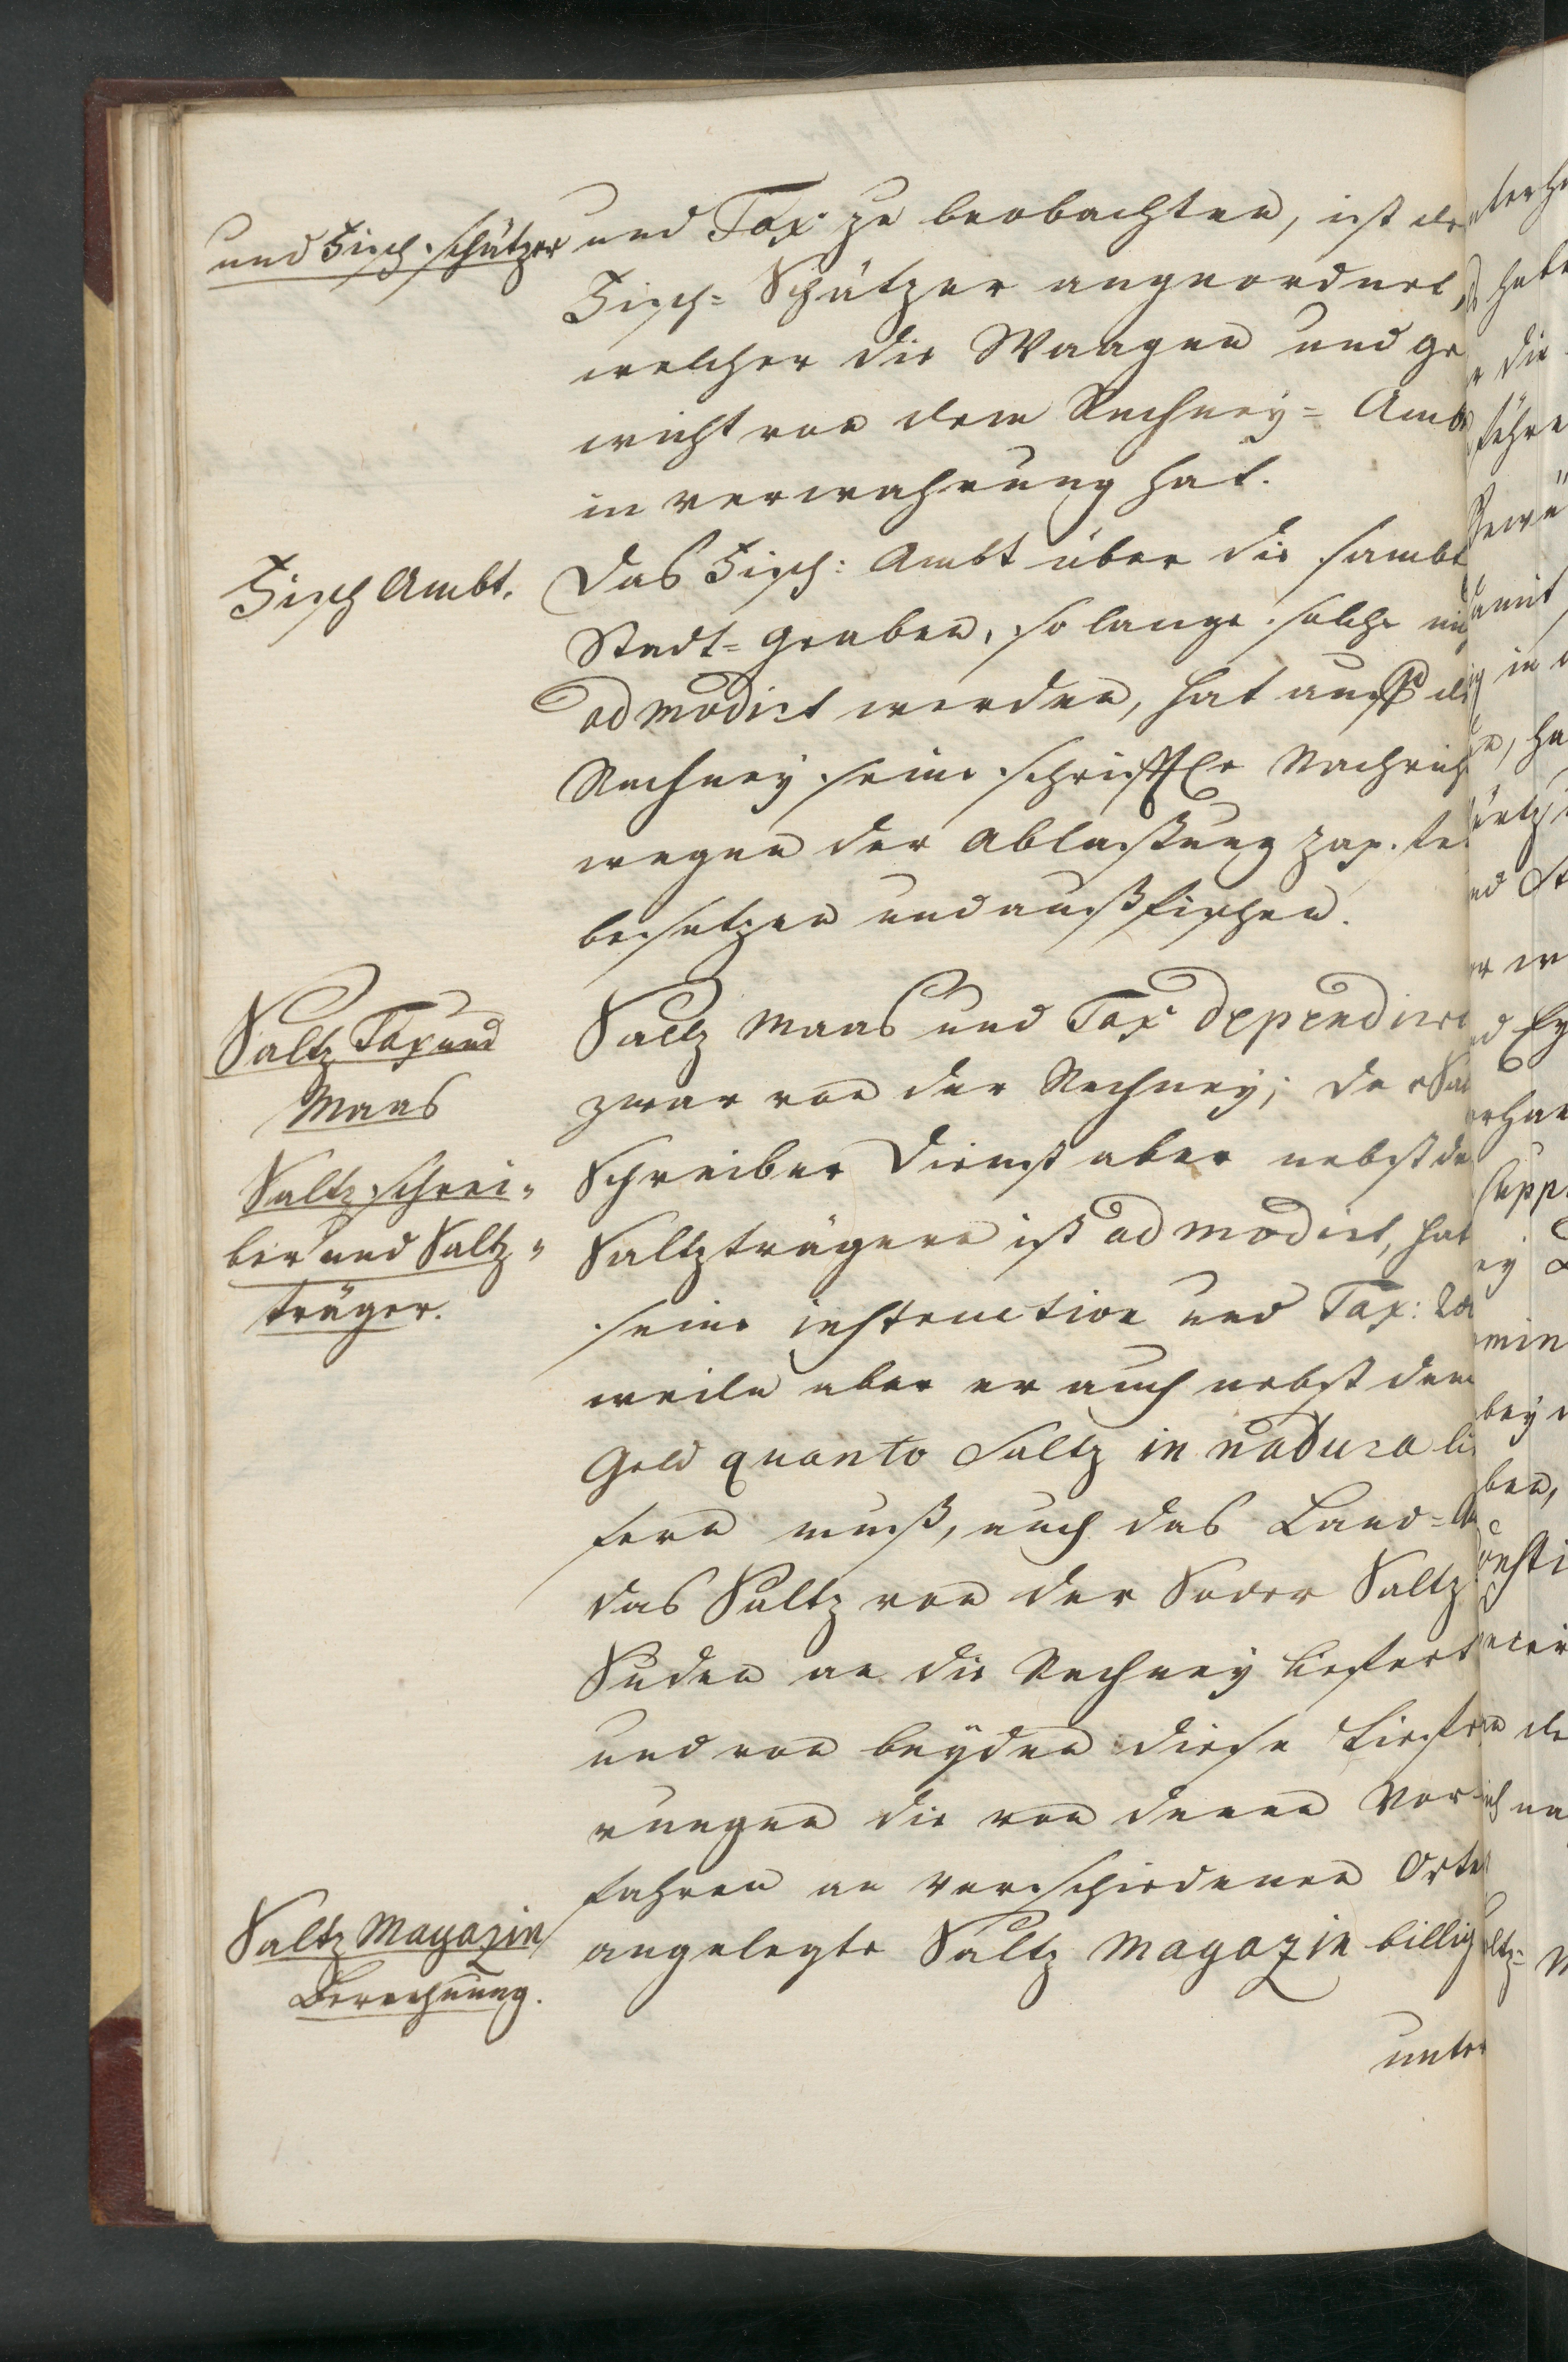 und Fisch schätzer
und Tax zu beobachten, ist de
Fisch= Schätzer angeordnet,
welcher die Waagen und ge
wicht von dem Rechney= Ambt
in verwahrung hat.
Fisch Ambt.
Das Fisch: Ambt über die sambt
Stadt=graben, so lange solche ni
admodirt werden, hat auch di
Rechney seine schrifftle Nachrich
wegen der Ablaßung zap. fe
besetzen und außfischen.
Saltz Tax und
Maas
Saltz Maas und Tax dependirt
zwar von der Rechney; der Sal
Saltz schrei=
ber und Saltz=
träger.
Schreiber Dienst aber nebst de
Saltzträgern ist admodirt, hat
seine instruction und Tax:
weile aber er auch nebst dem
Geld quanto Saltz in natura li
fern muß, auch das Land=A
das Saltz von der Soder Saltz
Suden an die Rechney liefert
und von beyden diese Liefe
rungen die von denen Vor=
fahren an verschiedenen Orte
Saltz Magazin
Berechnung.
angelegte Saltz Magazin billig
unter